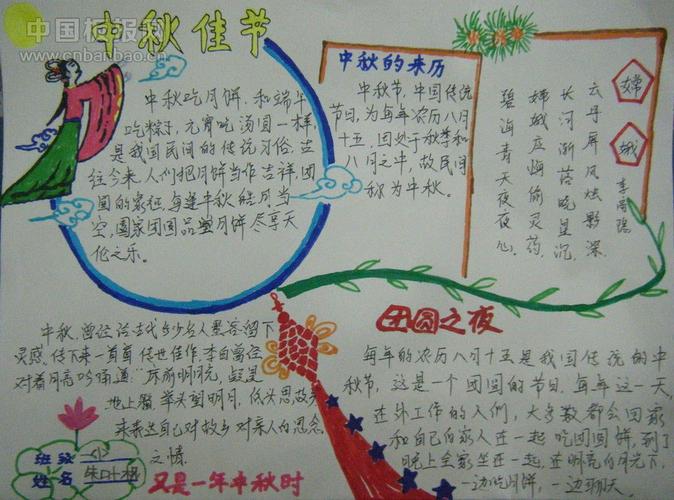 中国板报网
www.cnbanbao.cn
中秋佳节
中秋吃月饼，和端午
吃粽子，元宵吃汤圆一样，
是我国民间的传统习俗。古
往今来，人们把月饼当作吉祥、团
圆的象征，每逢中秋皓月当
空，阖家团圆品尝月饼尽享天
伦之乐。
中秋的来历
中秋节，中国传统
节日，为每年农历八月
十五，因处于秋季和
八月之中，故民间
称为中秋。
嫦娥
李商隐
云母屏风烛影深，
长河渐落晓星沉，
嫦娥应悔偷灵药，
碧海青天夜夜心。
中秋，曾经给古代多少名人墨客留下
灵感，传下来一首首传世佳作。李白曾经
对着月亮吟诵道：“床前明月光，疑是
地上霜，举头望明月，低头思故乡”
来表达自己对故乡对亲人的思念
之情。
班级
姓名
又是一年中秋时
团圆之夜
每年的农历八月十五是我国传统的中
秋节，这是一个团圆的节日，每年这一天，
在外工作的人们，大多数都会回家
和自己的家人在一起吃团圆饼，到了
晚上全家坐在一起，在明亮的月光下，
一边吃月饼，一边聊天